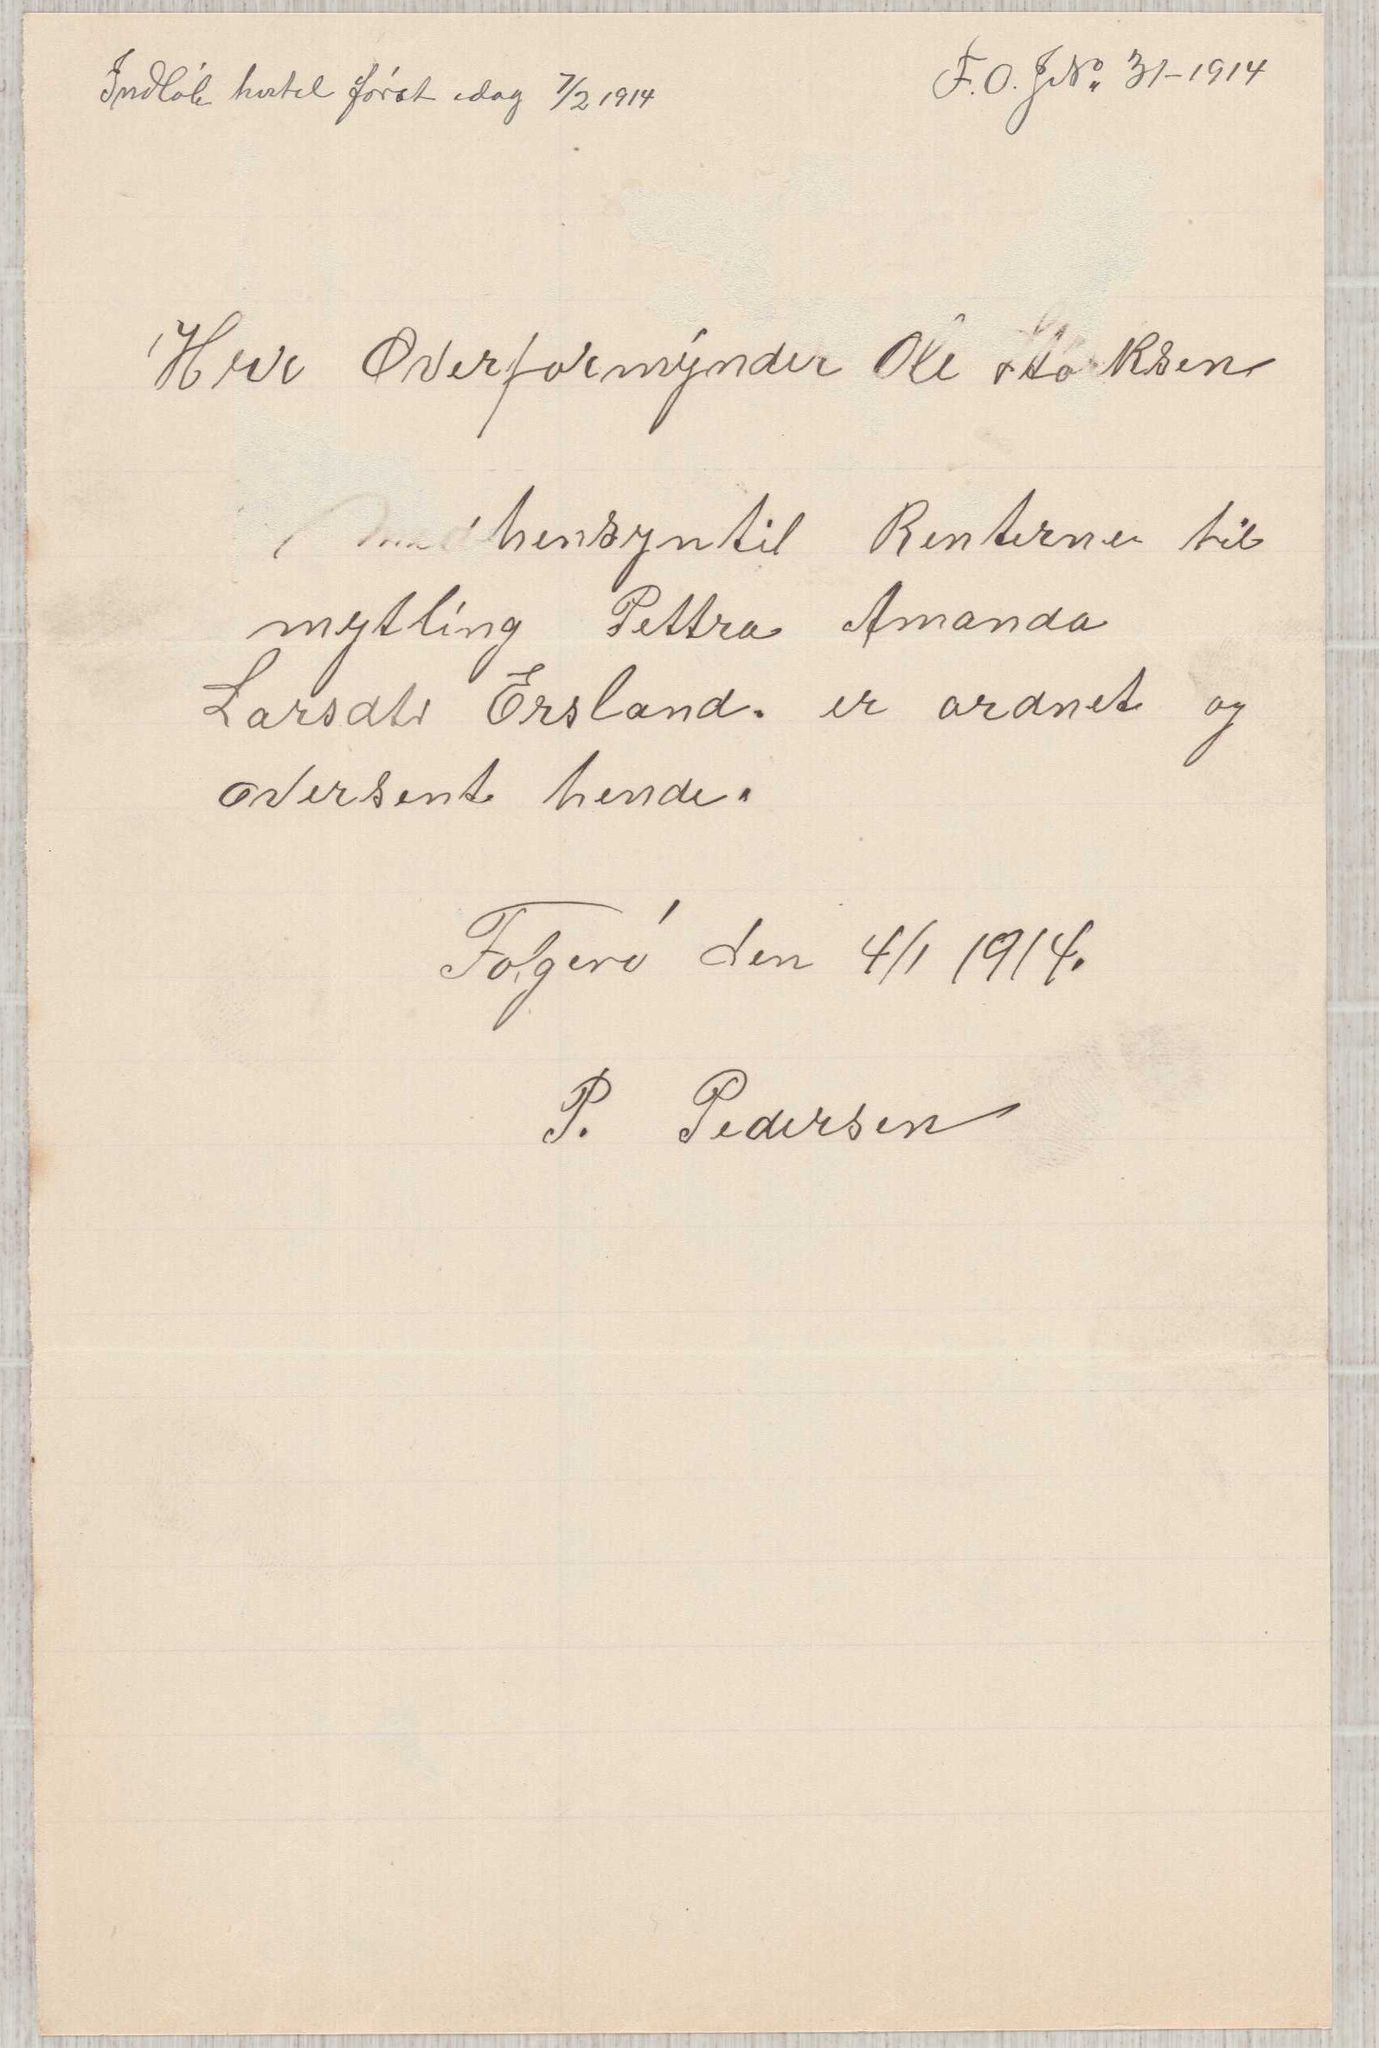 Indløb hertil først idag 7/2 1914
F. O. J No. 31-1914
Herr Overformynder Ole Størksen
Medhensyntil Renterne til
mytling Pettra Amanda
Larsdtr Ersland. er ordnet og
oversent hende.
Folgerø den 4/1 1914.
P. Pedersen